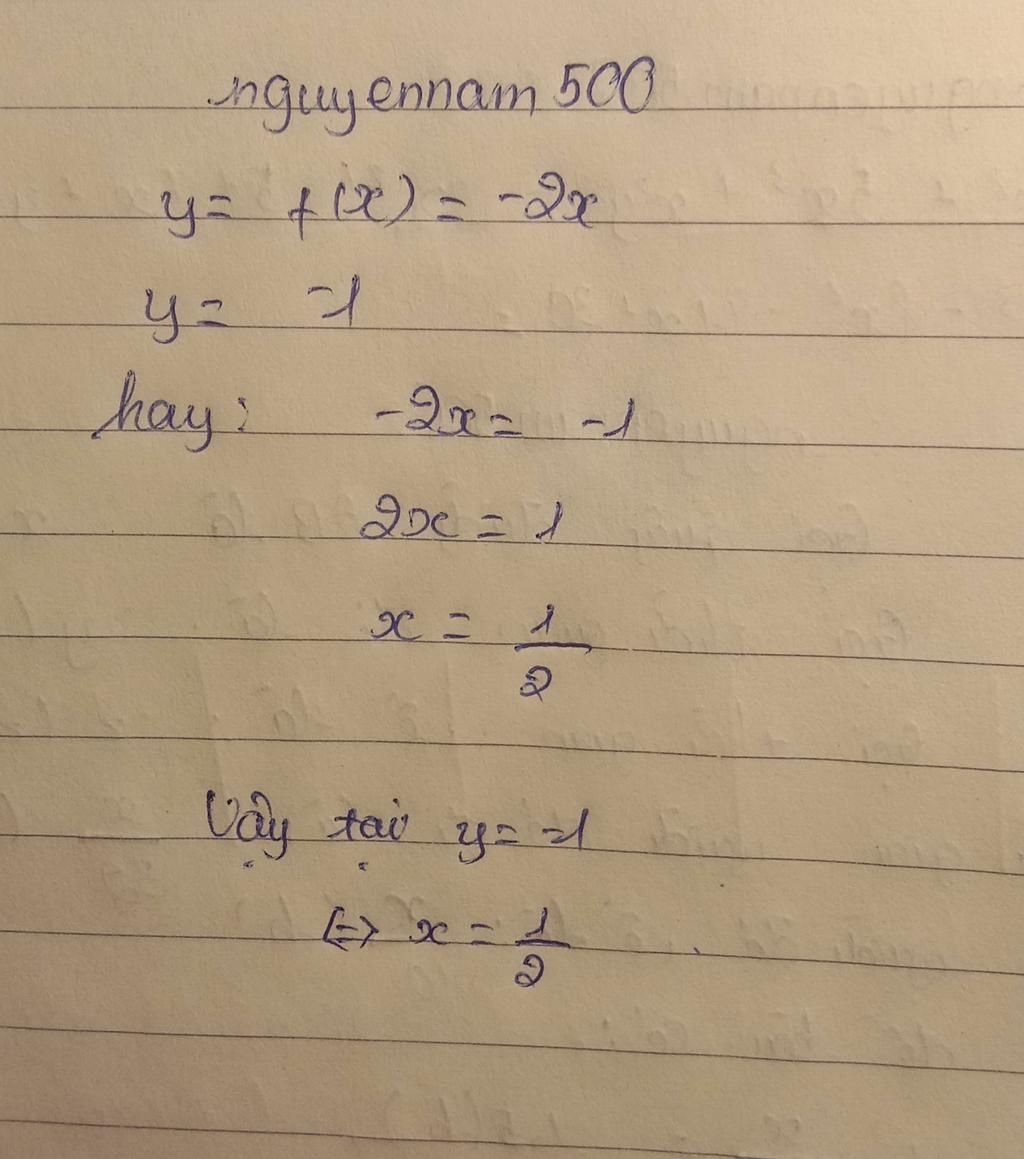 nguyennam 500
y = f(x) = -2x
y = -1
hay: -2x = -1
2x = 1
x = 1/2
Vậy tại y = -1
<=> x = 1/2